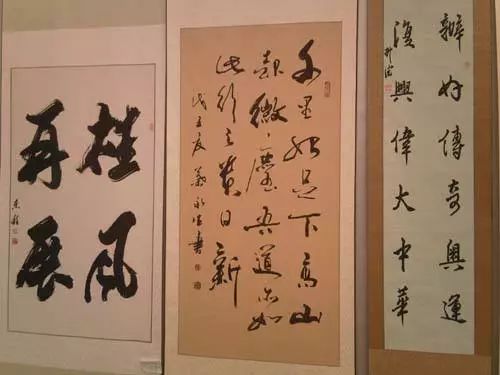 辦好傳奇奧運
復興偉大中華
千里始足下高山
起微塵吾道亦如
此行之貴日新
戊子夏
書
雄風
再展